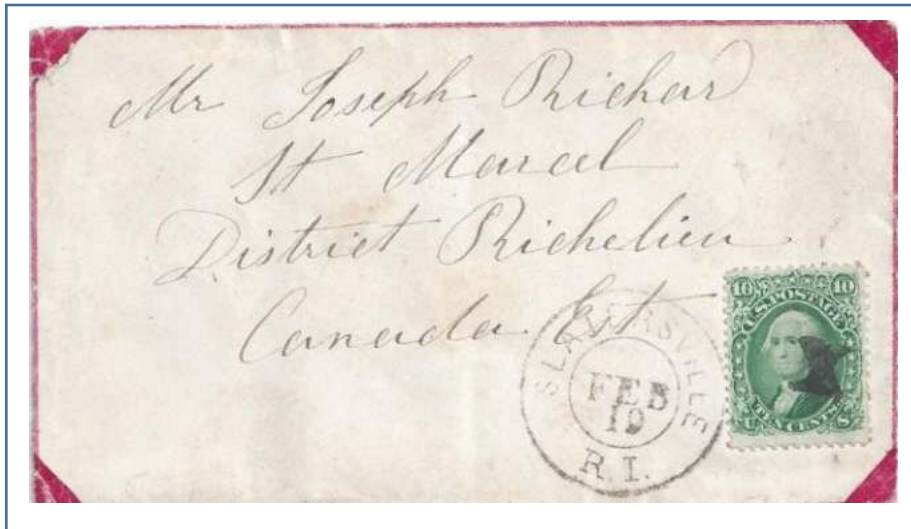 Mr Joseph Richard
St Marcel
District Richelieu
Canada Est
SLATERSVILLE
FEB
19
R.I.
10 10
U.S. POSTAGE
TEN CENTS
U S